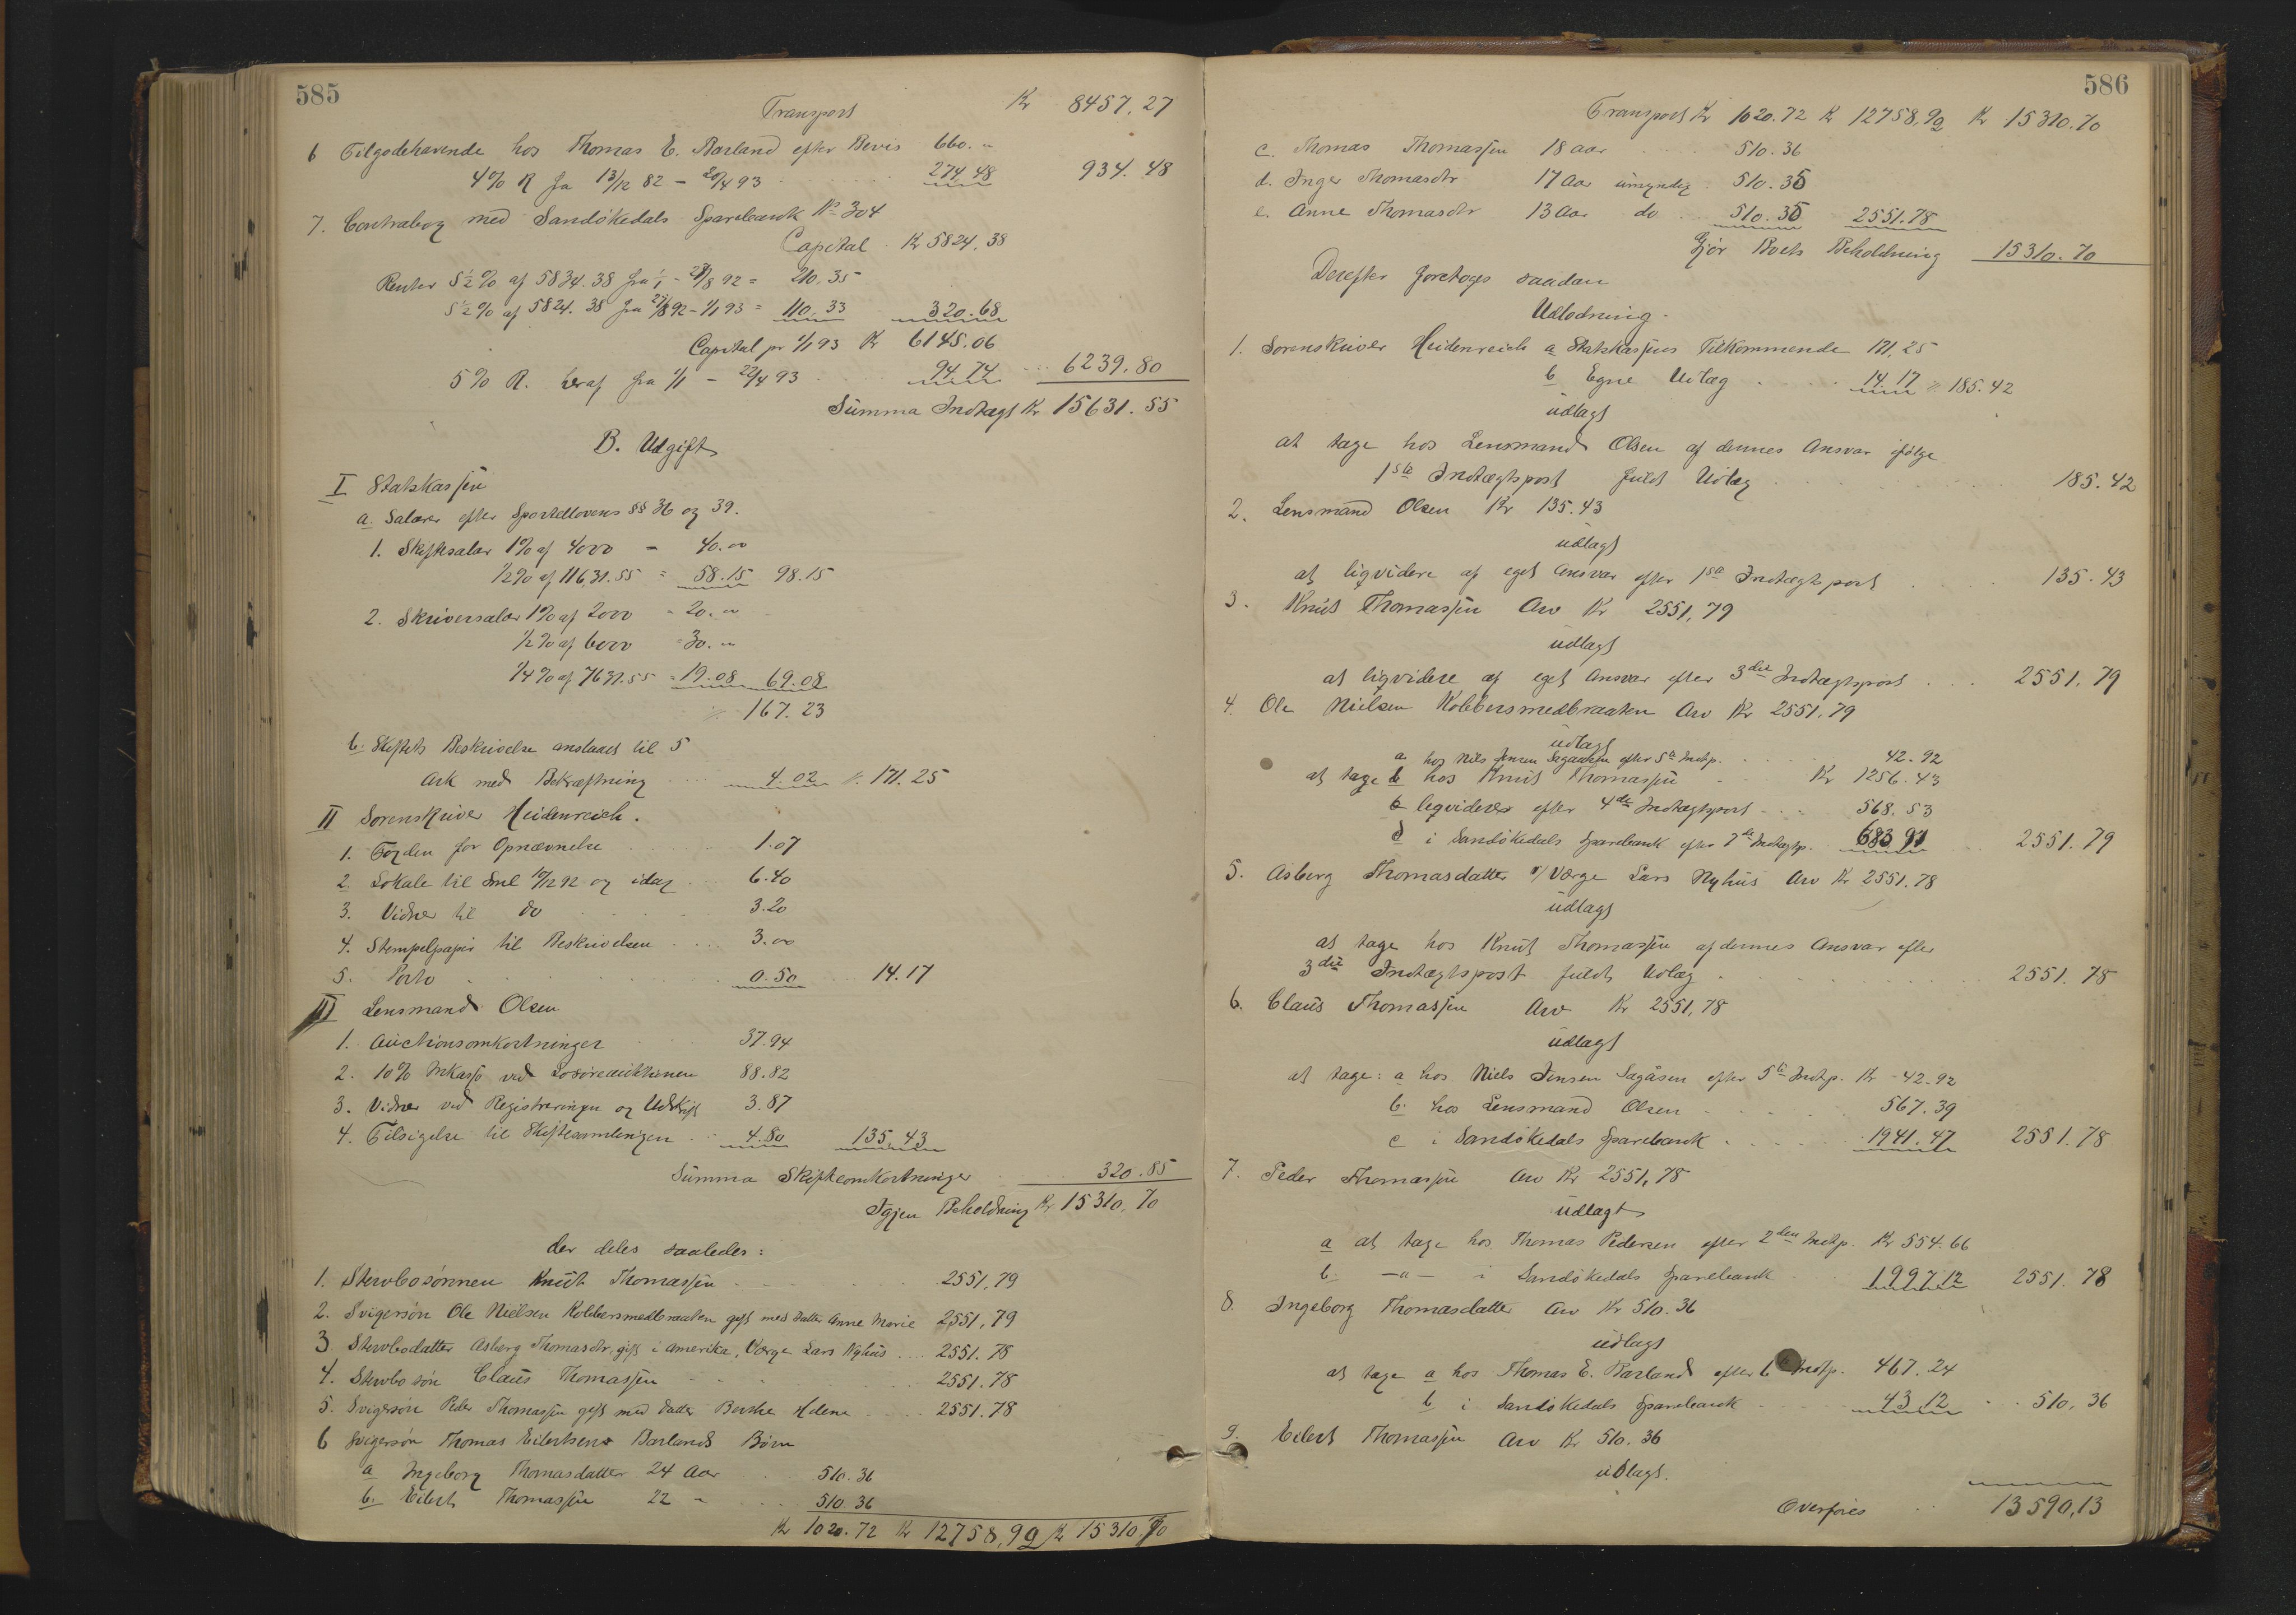 585
Transport Kr 8457.27
6 Tilgodehavende hos Thomas E. Barland efter Bevis 660.„
4% R fra 13/12 82 – 20/4 93 . . . . 274.48 934.48
7. Contrabog med Sandökedals Sparebank No 304
Capital . Kr 5824.38
Renter 5½% af 5834.38 fra 1/1 – 27/8 92 = 210.35
5½% af 5824.38 fra 27/8 92 – 1/1 93 = 110.33 320.68
Capital pr 1/1 93 Kr 6145.06
5% R. heraf fra 1/1 – 22/4 93 . . 94.74 . . . 6239.80
Summa Indtægt Kr 15631.55
B. Udgift
I Statskassen
a. Salarer efter Sportellovens §§ 36 og 39.
1. Skiftesalar 1% af 4000 = 40.00
½% af 11631.55 = 58.15 98.15
2. Skriversalar 1% af 2000 = 20.„
½% af 6000 = 30.„
¼% af 7631.55 = 19.08 69.08
167.23
b. Skiftets Beskrivelse anslaaet til 5
Ark med Bekræftning . . . . 4.02 171.25
II Sorenskriver Heidenreich.
1. Foged for Opnævnelse . . . 1.07
2. Lokale til Sml 10/12 92 og idag . . . 6.40
3. Vidner til do . . . . 3.20
4. Stempelpapir til Beskrivelsen . . . . 3.00
5. Porto . . . . 0.50 . . . 14.17
III Lensmand Olsen
1. Auctionsomkostninger . . 37.94
2. 10% Inkasso ved Losoreauktionen 88.82
3. Vidner ved Registreringen og Udskrift 3.87
4. Tilsigelse til Skiftesamlingen . . . 4.80 135.43
Summa Skifteomkostninger . . . 320.85
Igjen Beholdning Kr 15310.70
der deles saaledes:
1. Stervbosönnen Knut Thomassen . . . . 2551.79
2. Svigersön Ole Nielsen Kobbersmedbraaten gift med datter Anne Marie 2551.79
3 Stervbodatter Asberg Thomasdtr. gift i Amerika, Værge Lars Nyhus . . . 2551.78
4. Stervbo sön Claus Thomassen . . . . 2551.78
5. Svigersön Peder Thomassen gift med datter Berthe Helene . . . . 2551.78
6 Svigersön Thomas Eilertsens Barlands Börn
a Ingeborg Thomasdatter 24 Aar . . 510.36
b. Eilert Thomassen 22 „ . . . 510.36
Kr 1020.72 Kr 12758.92 Kr 15310.70
586
Transport Kr 1020.72 Kr 12758.92 Kr 15310.70
c. Thomas Thomassen 18 aar . . . 510.36
d. Inger Thomasdtr 17 Aar umyndig . 510.35
e. Anne Thomasdtr 13 Aar do . . 510.35 2551.78
Gjör Boets Beholdning 15310.70
Derefter foretoges saadan
Udlodning.
1. Sorenskriver Heidenreich a Statskassens Tilkommende 171.25
b Egne Udlæg . . . . 14.17 185.42
udlagt
at tage hos Lensmand Olsen af dennes Ansvar ifölge
1ste Indtægtspost fuldt Udlæg . . . . 185.42
2. Lensmand Olsen Kr 135.43
udlagt
at liqvidere af eget Ansvar efter 1ste Indtægtspost . . . 135.43
3. Knut Thomassen Arv Kr 2551,79
udlagt
at liqvidere af eget Ansvar efter 3die Indtægtspost . . . 2551.79
4. Ole Nielsen Kobbersmedbraaten Arv Kr 2551.79
udlagt
a hos Niels Jensen Sagaasen efter 5te Indtp. . . . 42.92
at tage b hos Knut Thomassen . . . Kr 1256.43
c liqviderer efter 4de Indtægtspost . . . . 568.53
d i Sandökedals Sparebank efter 7de Indtægtsp. 683 91 . . 2551.79
5. Asberg Thomasdatter v/ Værge Lars Nyhus Arv Kr 2551.78
udlagt
at tage hos Knut Thomassen af dennes Ansvar efter
3die Indtægtspost fuldt Udlæg . . . . 2551.78
6. Claus Thomassen Arv Kr 2551,78
udlagt
at tage: a hos Niels Jensen Sagåsen efter 5te Indtp. Kr 42.92
b. hos Lensmand Olsen . . . . 567.39
c i Sandökedals Sparebank . . . . 1941.47 2551.78
7. Peder Thomassen Arv Kr 2551,78
udlagt
a at tage hos Thomas Pedersen efter 2den Indtp. Kr 554.66
b. –„– i Sandökedals Sparebank . . 1997 12 2551.78
8. Ingeborg Thomasdatter Arv Kr 510.36
udlagt
at tage a hos Thomas E. Barland efter 6te Indtp. 467.24
b i Sandökedals Sparebank . . . . 43 12 . . 510,36
9. Eilert Thomassen Arv Kr 510.36
udlagt.
Overföres . . 13590,13